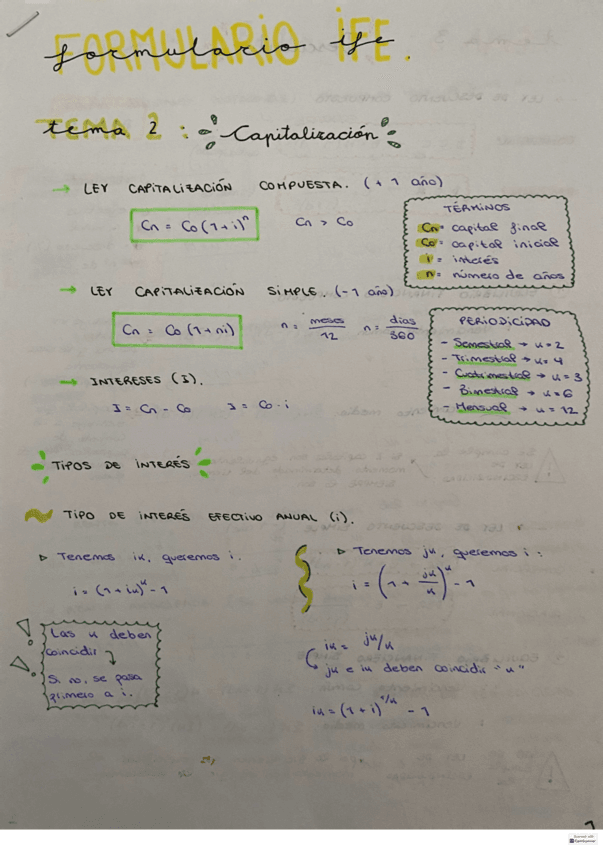 FORMULARIO IFE.
formulario ife.
tema 2 : Capitalización
→ LEY CAPITALIZACIÓN COMPUESTA. (+ 1 año)
Cn = Co (1+i)^n
Cn > Co
TÉRMINOS
Cn = capital final
Co = capital inicial
i = interés
n = número de años
→ LEY CAPITALIZACIÓN SIMPLE. (-1 año)
Cn = Co (1+ni)
n = meses/12 n = días/360
PERIODICIDAD
- Semestral → k = 2
- Trimestral → k = 4
- Cuatrimestral → k = 3
- Bimestral → k = 6
- Mensual → k = 12
→ INTERESES (I).
I = Cn - Co I = Co · i
TIPOS DE INTERÉS
TIPO DE INTERÉS EFECTIVO ANUAL (i).
▷ Tenemos ik, queremos i.
i = (1+ik)^k - 1
▷ Tenemos jk, queremos i :
i = (1 + jk/k)^k - 1
Las k deben
coincidir
Si no, se pasa
primero a i.
ik = jk/k
jk e ik deben coincidir "k"
ik = (1+i)^1/k - 1
1
Scanned with
CamScanner